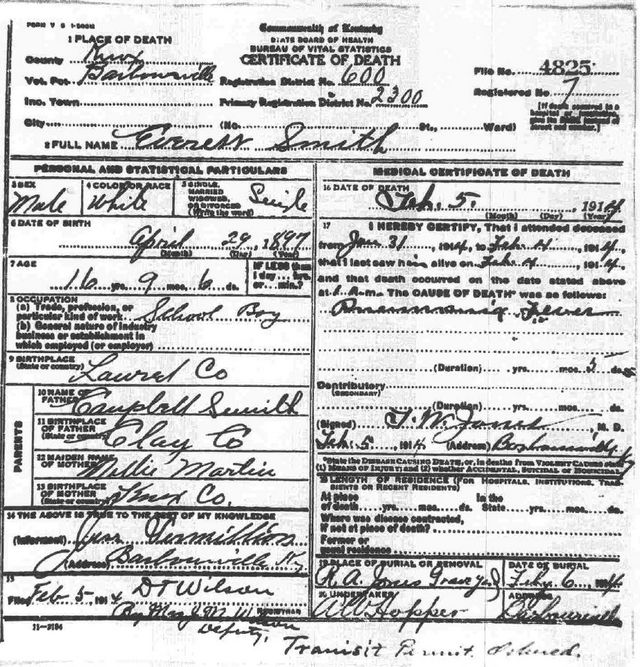 FORM V S 1-50M
Commonwealth of Kentucky
STATE BOARD OF HEALTH
BUREAU OF VITAL STATISTICS
CERTIFICATE OF DEATH
1 PLACE OF DEATH
County Knox
Vot. Pct. Barbourville
Registration District No. 600
File No. 4825
Inc. Town
Primary Registration District No. 2300
Registered No. 7
City (No. St., Ward)
[If death occurred in a hospital or institution, give its NAME instead of street and number.]
2 FULL NAME Everett Smith
PERSONAL AND STATISTICAL PARTICULARS
3 SEX Male
4 COLOR OR RACE White
5 SINGLE, MARRIED WIDOWED, OR DIVORCED (Write the word) Single
6 DATE OF BIRTH April 29, 1897
(Month) (Day) (Year)
7 AGE 16 yrs. 9 mos. 6 ds.
IF LESS than 1 day.... hrs. or.... min.?
8 OCCUPATION
(a) Trade, profession, or particular kind of work School Boy
(b) General nature of industry business or establishment in which employed (or employer)
9 BIRTHPLACE (State or country) Laurel Co
PARENTS
10 NAME OF FATHER Campbell Smith
11 BIRTHPLACE OF FATHER (State or country) Clay Co
12 MAIDEN NAME OF MOTHER Millie Martin
13 BIRTHPLACE OF MOTHER (State or country) Knox Co.
14 THE ABOVE IS TRUE TO THE BEST OF MY KNOWLEDGE
(Informant) Vermillion
(Address) Barbourville Ky
15
Filed Feb 5 1914 D T Wilson
REGISTRAR
By Wilson
Deputy,
11-3184
MEDICAL CERTIFICATE OF DEATH
16 DATE OF DEATH Feb. 5. 1914
(Month) (Day) (Year)
17 I HEREBY CERTIFY, That I attended deceased
from Jan 31 1914, to Feb 4 1914
that I last saw him alive on Feb 4 1914
and that death occurred on the date stated above
at A.m. The CAUSE OF DEATH* was as follows:
Pneumonia Fever
(Duration) yrs. mos. 5 ds
Contributory
(SECONDARY)
(Duration) yrs. mos. ds.
(Signed) Jones M. D.
Feb. 5 1914 (Address) Barbourville Ky
*State the DISEASE CAUSING DEATH, or, in deaths from VIOLENT CAUSES state
(1) MEANS OF INJURY; and (2) whether ACCIDENTAL, SUICIDAL or HOMICIDAL
18 LENGTH OF RESIDENCE (FOR HOSPITALS, INSTITUTIONS, TRANSIENTS OR RECENT RESIDENTS)
At place of death yrs. mos. ds. In the State yrs. mos. ds.
Where was disease contracted, if not at place of death?
Former or usual residence
19 PLACE OF BURIAL OR REMOVAL
Jones Grave Yard
DATE OF BURIAL
Feb. 6 1914
20 UNDERTAKER
Hopper
ADDRESS
Barbourville
Transit Permit Issued.